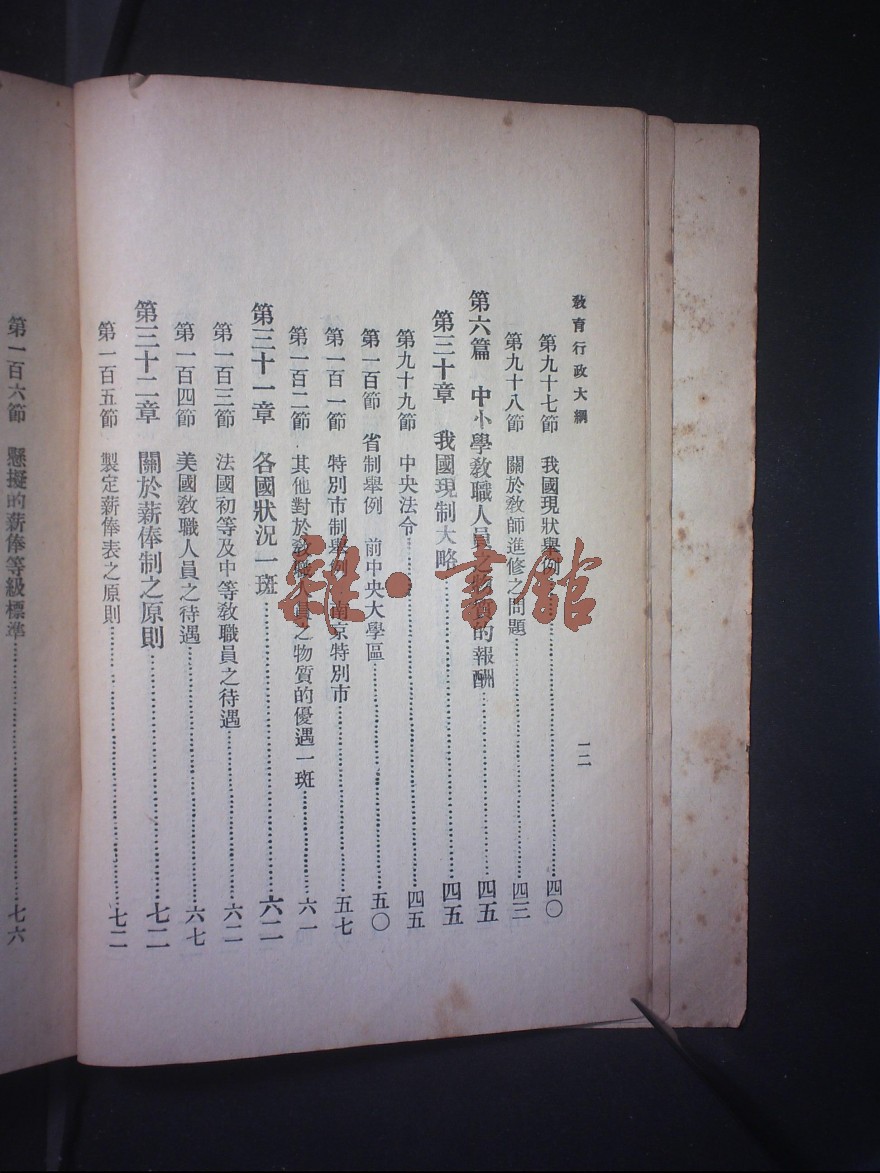 教育行政大綱
一二
第九十七節 我國現狀舉例……四〇
第九十八節 關於教師進修之問題……四三
第六篇 中小學教職人員之物質的報酬……四五
第三十章 我國現制大略……四五
第九十九節 中央法令……四五
第一百節 省制舉例 前中央大學區……五〇
第一百一節 特別市制舉例 南京特別市……五七
第一百二節 其他對於教職人員之物質的優遇一斑……六一
第三十一章 各國狀況一斑……六二
第一百三節 法國初等及中等教職員之待遇……六二
第一百四節 美國教職人員之待遇……六七
第三十二章 關於薪俸制之原則……七二
第一百五節 製定薪俸表之原則……七二
第一百六節 懸擬的薪俸等級標準……七六
雜·書館